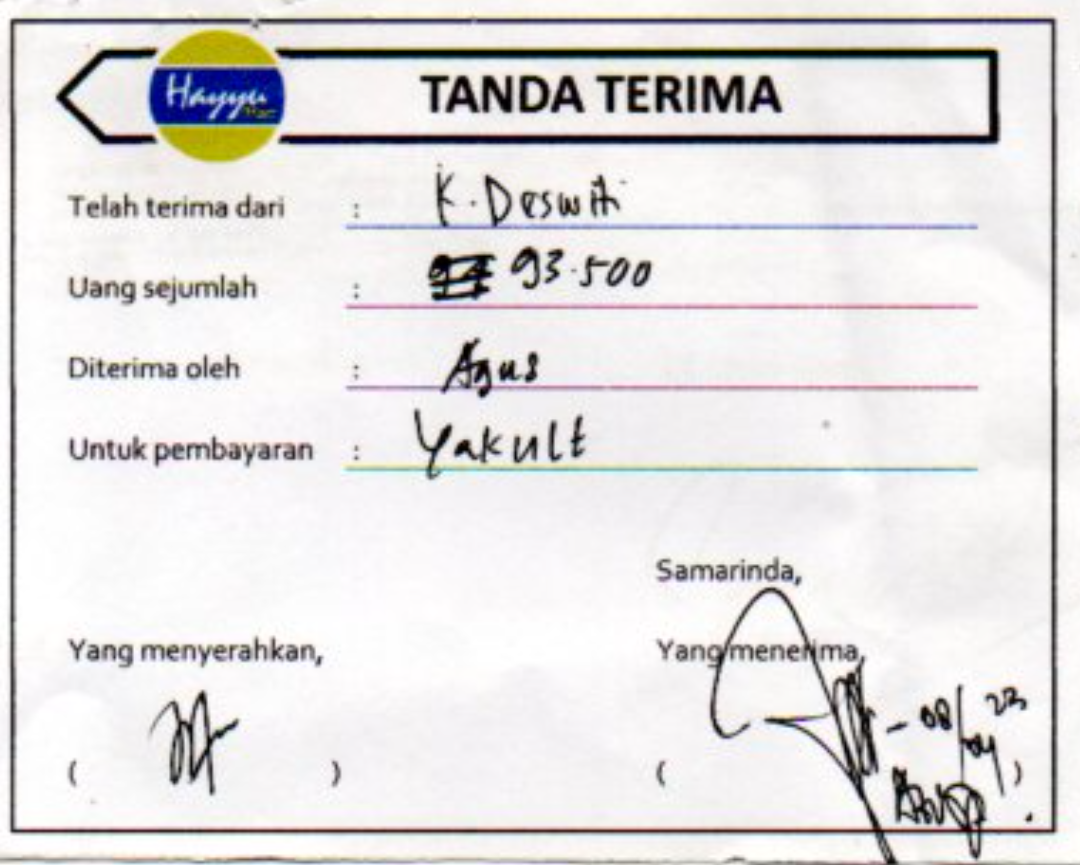 Hayyu
TANDA TERIMA
Telah terima dari : K. Deswiti
Uang sejumlah : 93.500
Diterima oleh : Agus
Untuk pembayaran : Yakult
Samarinda,
Yang menyerahkan, Yang menerima,
- 08/04 23
( ) ( )